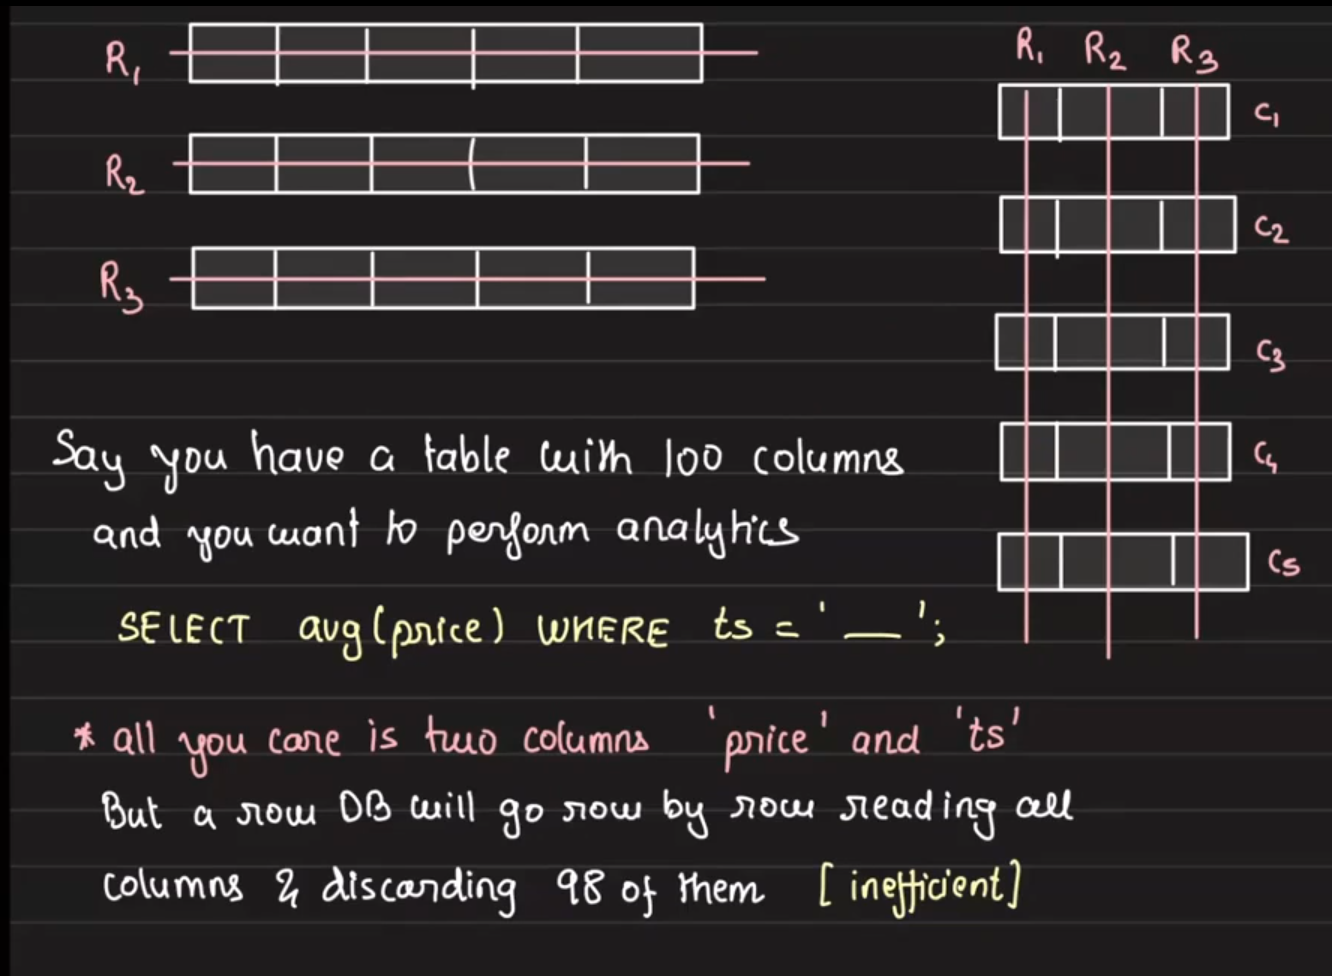 R₁
R₂
R₃
R₁ R₂ R₃
C₁
C₂
C₃
C₄
C₅
Say you have a table with 100 columns
and you want to perform analytics
SELECT avg(price) WHERE ts = '__';
* all you care is two columns 'price' and 'ts'
But a row DB will go row by row reading all
columns & discarding 98 of them [inefficient]